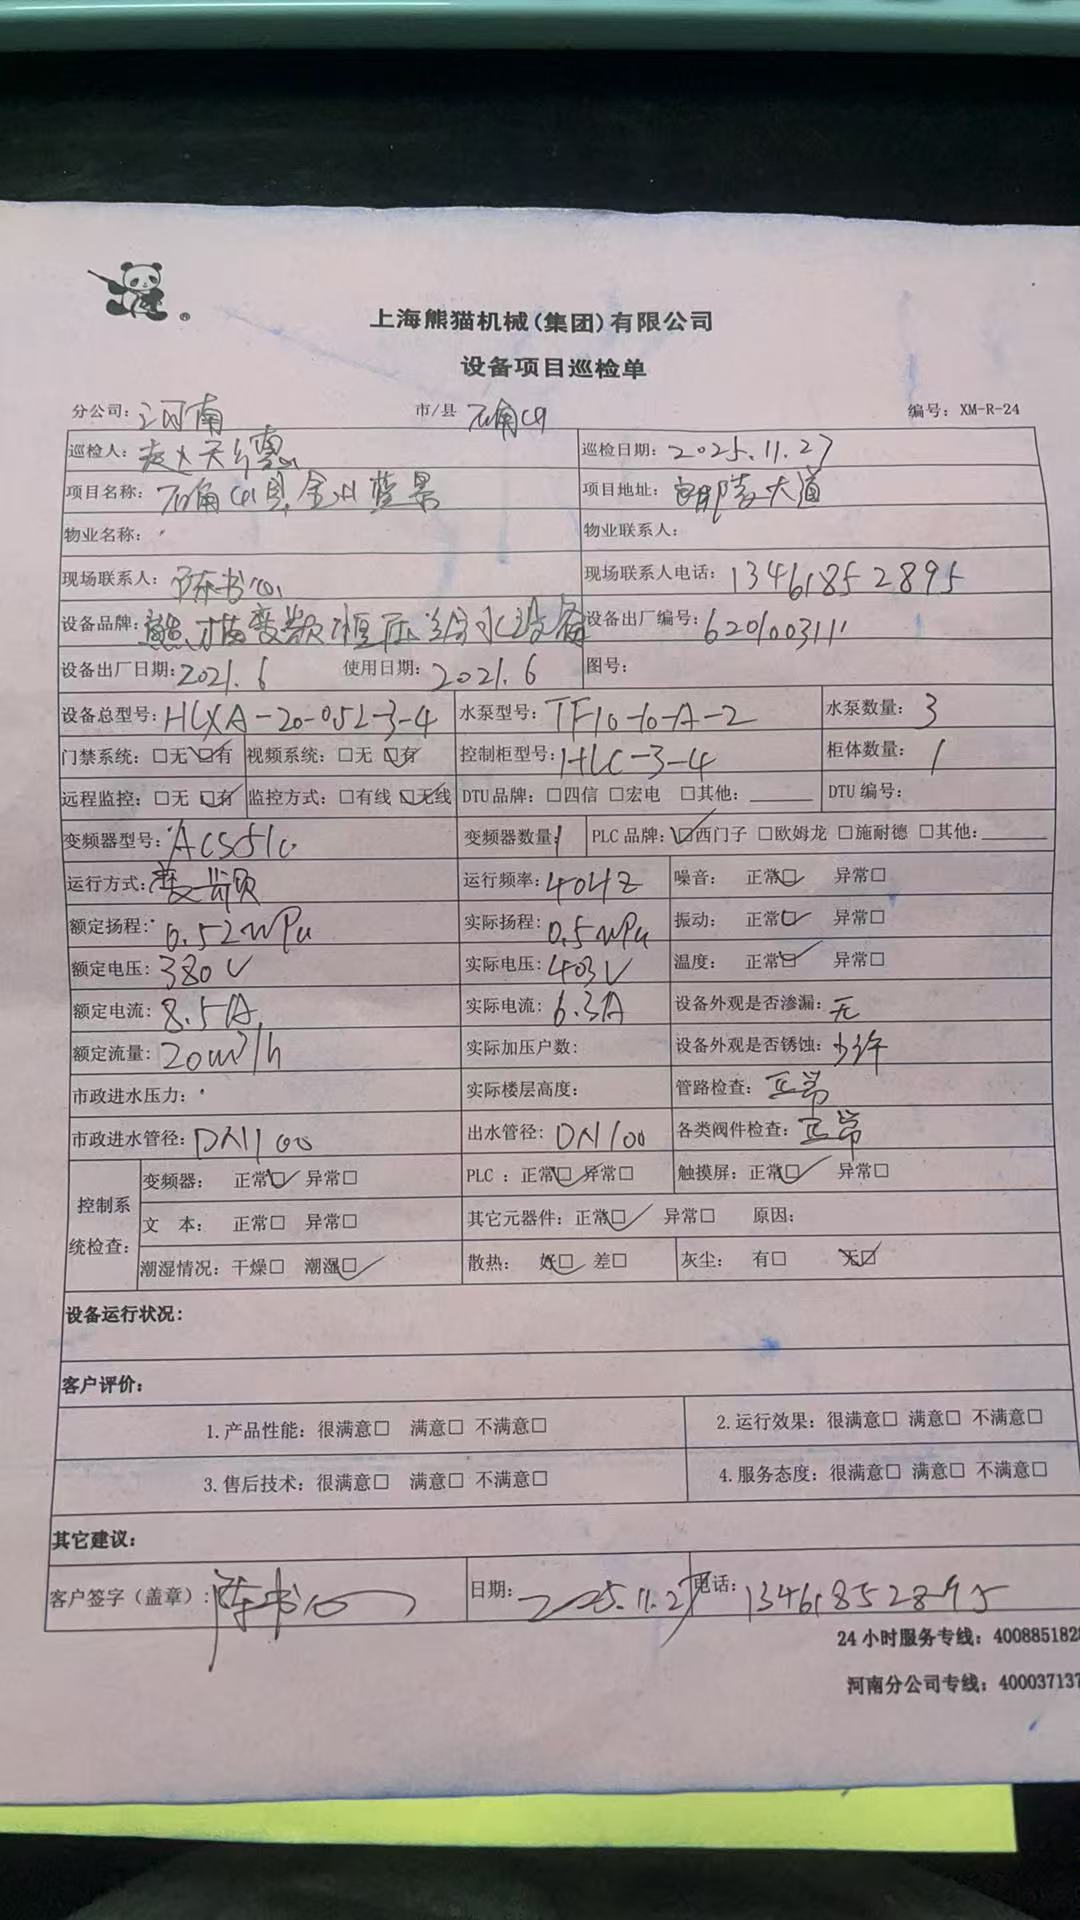 上海熊猫机械(集团)有限公司
设备项目巡检单
分公司: 河南 市/县 确山 编号: XM-R-24
巡检人: 巡检日期: 2025.11.27
项目名称: 确山县 蓝景 项目地址: 大道
物业名称: 物业联系人:
现场联系人: 陈书 现场联系人电话: 13461852895
设备品牌: 熊猫变频恒压给水设备 设备出厂编号: 6201003111
设备出厂日期: 2021.6 使用日期: 2021.6 图号:
设备总型号: HLXA-20-052-3-4 水泵型号: TF10-10-A-2 水泵数量: 3
门禁系统: □无 □有 视频系统: □无 □有 控制柜型号: HLC-3-4 柜体数量: 1
远程监控: □无 □有 监控方式: □有线 □无线 DTU品牌: □四信 □宏电 □其他: DTU编号:
变频器型号: ACS510 变频器数量: 1 PLC品牌: □西门子 □欧姆龙 □施耐德 □其他:
运行方式: 变频 运行频率: 40HZ 噪音: 正常□ 异常□
额定扬程: 0.52mPa 实际扬程: 0.5mPa 振动: 正常□ 异常□
额定电压: 380V 实际电压: 403V 温度: 正常□ 异常□
额定电流: 8.5A 实际电流: 6.3A 设备外观是否渗漏: 无
额定流量: 20m³/h 实际加压户数: 设备外观是否锈蚀: 少许
市政进水压力: 实际楼层高度: 管路检查: 正常
市政进水管径: DN100 出水管径: DN100 各类阀件检查: 正常
控制系统检查: 变频器: 正常□ 异常□ PLC: 正常□ 异常□ 触摸屏: 正常□ 异常□
文 本: 正常□ 异常□ 其它元器件: 正常□ 异常□ 原因:
潮湿情况: 干燥□ 潮湿□ 散热: 好□ 差□ 灰尘: 有□ 无□
设备运行状况:
客户评价:
1.产品性能: 很满意□ 满意□ 不满意□ 2.运行效果: 很满意□ 满意□ 不满意□
3.售后技术: 很满意□ 满意□ 不满意□ 4.服务态度: 很满意□ 满意□ 不满意□
其它建议:
客户签字(盖章): 陈书 日期: 2025.11.27 电话: 13461852895
24小时服务专线: 400885182
河南分公司专线: 40003713